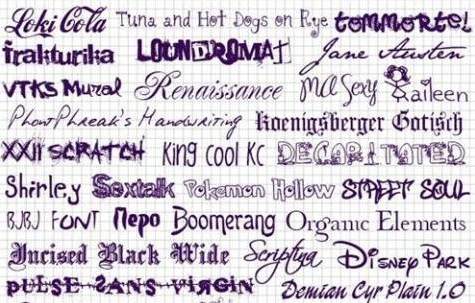 Loki Cola Tuna and Hot Dogs on Rye tommortel
frakturika LOUNDROMAT Jane Austen
VTKS Mural Renaissance MA Sexy Raileen
PhontPhreak's Handwriting Koenigsberger Gotisch
XXII SCRATCH King Cool KC DECAPITATED
Shirley Sextalk Pokemon Hollow STREET SOUL
BJBJ FONT Перо Boomerang Organic Elements
Incised Black Wide Scriptina DISNEY PARK
PULSE SANS VIRGIN Demian Cyr Plain 1.0